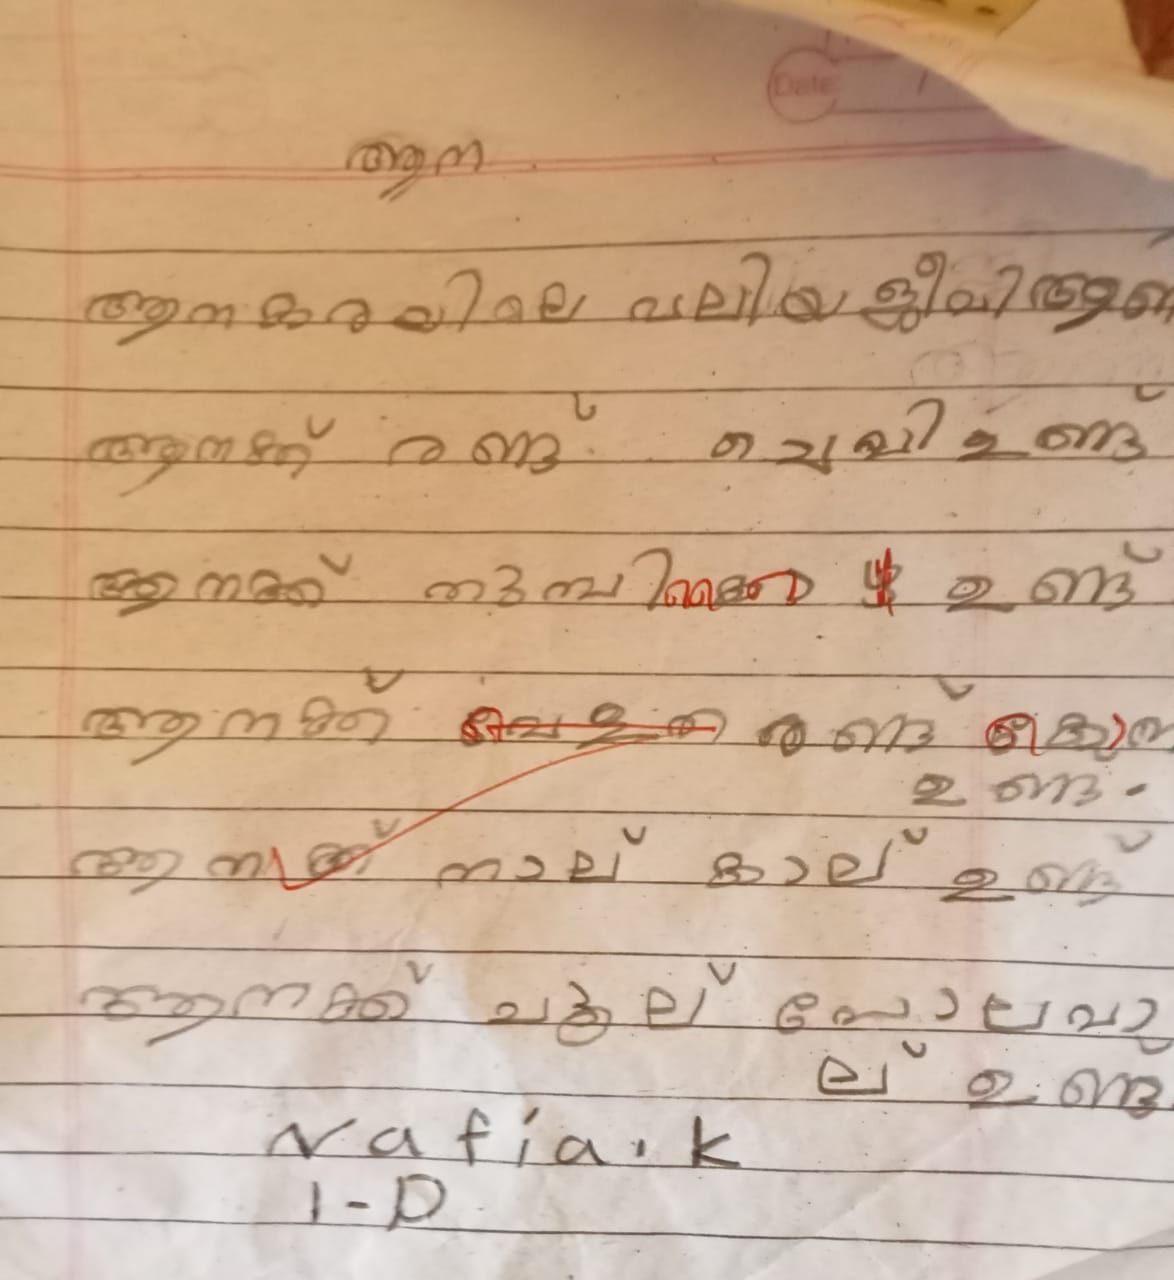 Date
ആന
ആനകരയിലെ വലിയ ജീവി ആണ
ആനക്ക് രണ്ട് ചെവി ഉണ്ട്
ആനക്ക് ഉണ്ട്
ആനക്ക് രണ്ട് കൊമ്പ
ഉണ്ട.
ആനക്ക് നാല് കാല് ഉണ്ട്
ആനക്ക് ചൂല് പോലെ വാ
ല് ഉണ്ട്
Nafia.K
1-D